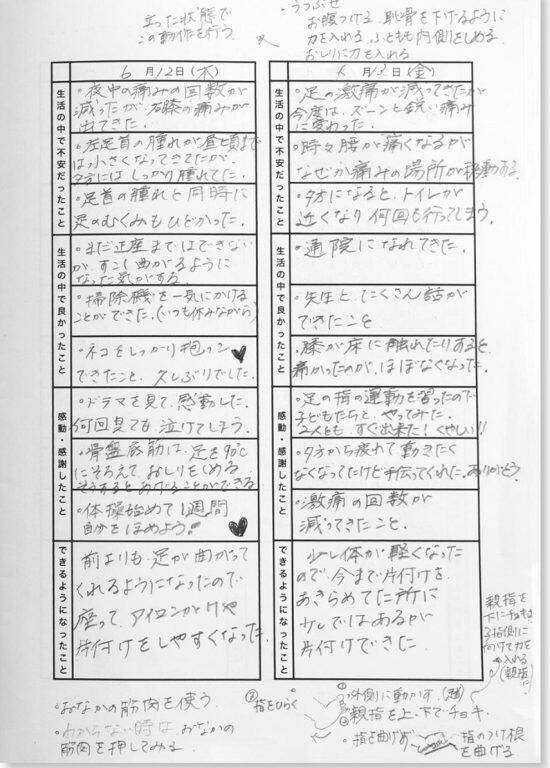 立った状態で
この動作を行う
うつぶせ
お腹つける 恥骨を下げるように
力を入れる ふともも内側をしめる
おしりに力を入れる
6月12日(木)
生活の中で不安だったこと
・夜中の痛みの回数が
減ったが、右膝の痛みが
出てきた.
・左足首の腫れが昼頃まで
は小さくなってきてたが
夕方にはしっかり腫れてた.
・足首の腫れと同時に
足のむくみもひどかった.
生活の中で良かったこと
・まだ正座まではできない
が、すこし曲がるように
なった気がする.
・掃除機を一気にかける
ことができた.(いつも休みながら)
・ネコをしっかり抱っこ
できたこと 久しぶりでした.
感動・感謝したこと
・ドラマを見て、感動した.
何回見ても泣けてしまう.
・骨盤底筋は、足を90℃
にそろえて おしりをしめる
そうするとあげることができる
・体操始めて1週間
自分をほめよう!!
できるようになったこと
前よりも、足が曲がって
くれるようになったので
座って、アイロンがけや
片付けをしやすくなった.
月13日(金)
生活の中で不安だったこと
・足の激痛が減ってきたが
今度は、ズーンと鈍い痛み
に変わった.
・時々腰が痛くなるが
なぜか痛みの場所が移動する.
・夕方になると、トイレが
近くなり 何回も行ってしまう.
生活の中で良かったこと
・通院になれてきた.
・先生と、たくさん話が
できたこと
・膝が床に触れたりすると
痛かったのが、ほぼなくなった.
感動・感謝したこと
・足の指の運動を習ったので
子どもたちと、やってみた.
2人とも、すぐ出来た! くやしい!!
・夕方から疲れて動きたく
なくなってたけど手伝ってくれた. ありがとう.
・激痛の回数が
減ってきたこと.
できるようになったこと
少し体が軽くなった
ので、今まで片付けを
あきらめてた所に
少しではあるが
片付けできた
親指を
下に
子指側に
向けて力を
入れる
(親指)
・おなかの筋肉を使う
・わからない時は、おなかの
筋肉を押してみる
②指をひらく
①外側に動かす.(足)
③親指を上・下でチョキ
・指を曲げず
指のつけ根
を曲げる